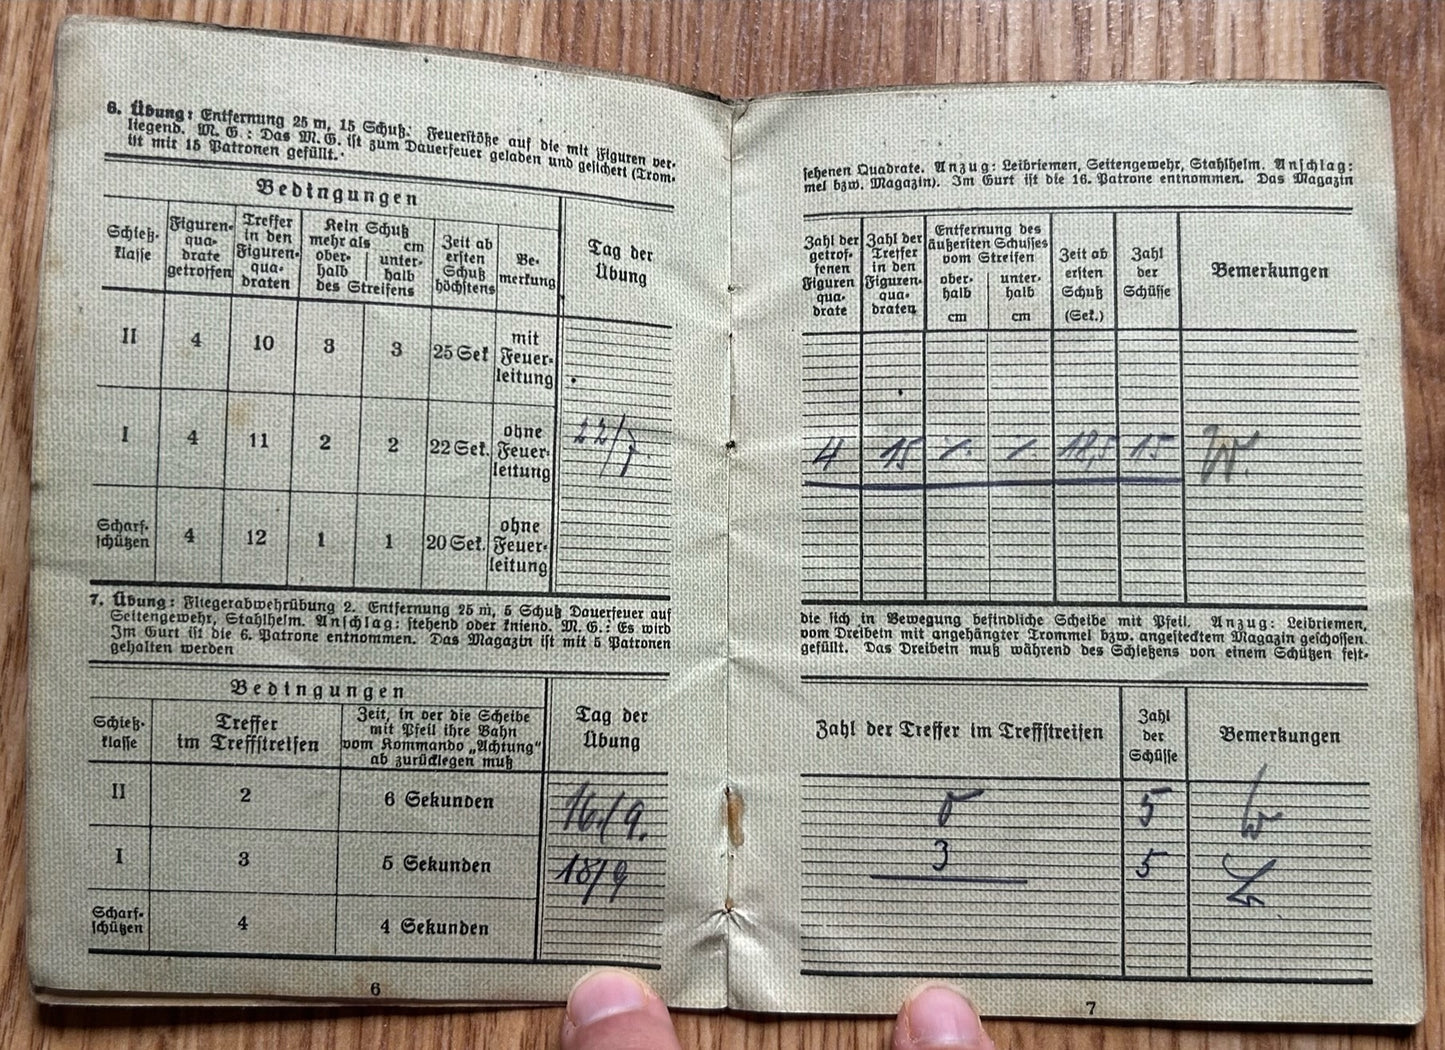 6. Übung: Entfernung 25 m, 15 Schuß. Feuerstöße auf die mit Figuren ver-
liegend. M. G.: Das M. G. ist zum Dauerfeuer geladen und gesichert (Trom-
ist mit 15 Patronen gefüllt.
Bedingungen
Schieß-
klasse
Figuren-
qua-
drate
getroffen
Treffer
in den
Figuren-
qua-
draten
Kein Schuß
mehr als cm
ober-
halb
unter-
halb
des Streifens
Zeit ab
ersten
Schuß
höchstens
Be-
merkung
Tag der
Übung
II 4 10 3 3 25 Sek mit
Feuer-
leitung
I 4 11 2 2 22 Sek. ohne
Feuer-
leitung
22/7.
Scharf-
schützen
4 12 1 1 20 Sek. ohne
Feuer-
leitung
7. Übung: Fliegerabwehrübung 2. Entfernung 25 m, 5 Schuß Dauerfeuer auf
Seitengewehr, Stahlhelm. Anschlag: stehend oder kniend. M. G.: Es wird
Im Gurt ist die 6. Patrone entnommen. Das Magazin ist mit 5 Patronen
gehalten werden
Bedingungen
Schieß-
klasse
Treffer
im Treffstreifen
Zeit, in der die Scheibe
mit Pfeil ihre Bahn
vom Kommando „Achtung“
ab zurücklegen muß
Tag der
Übung
II 2 6 Sekunden 16./9.
I 3 5 Sekunden 18/9
Scharf-
schützen
4 4 Sekunden
6
sehenen Quadrate. Anzug: Leibriemen, Seitengewehr, Stahlhelm. Anschlag:
mel bzw. Magazin). Im Gurt ist die 16. Patrone entnommen. Das Magazin
Zahl der
getrof-
fenen
Figuren
qua-
drate
Zahl der
Treffer
in den
Figuren-
qua-
draten
Entfernung des
äußersten Schusses
vom Streifen
ober-
halb
cm
unter-
halb
cm
Zeit ab
ersten
Schuß
(Sek.)
Zahl
der
Schüsse
Bemerkungen
4 15 ⁒ ⁒ 18,5 15 W.
die sich in Bewegung befindliche Scheibe mit Pfeil. Anzug: Leibriemen,
vom Dreibein mit angehängter Trommel bzw. angestecktem Magazin geschossen.
gefüllt. Das Dreibein muß während des Schießens von einem Schützen fest-
Zahl der Treffer im Treffstreifen
Zahl
der
Schüsse
Bemerkungen
5
3 5
7